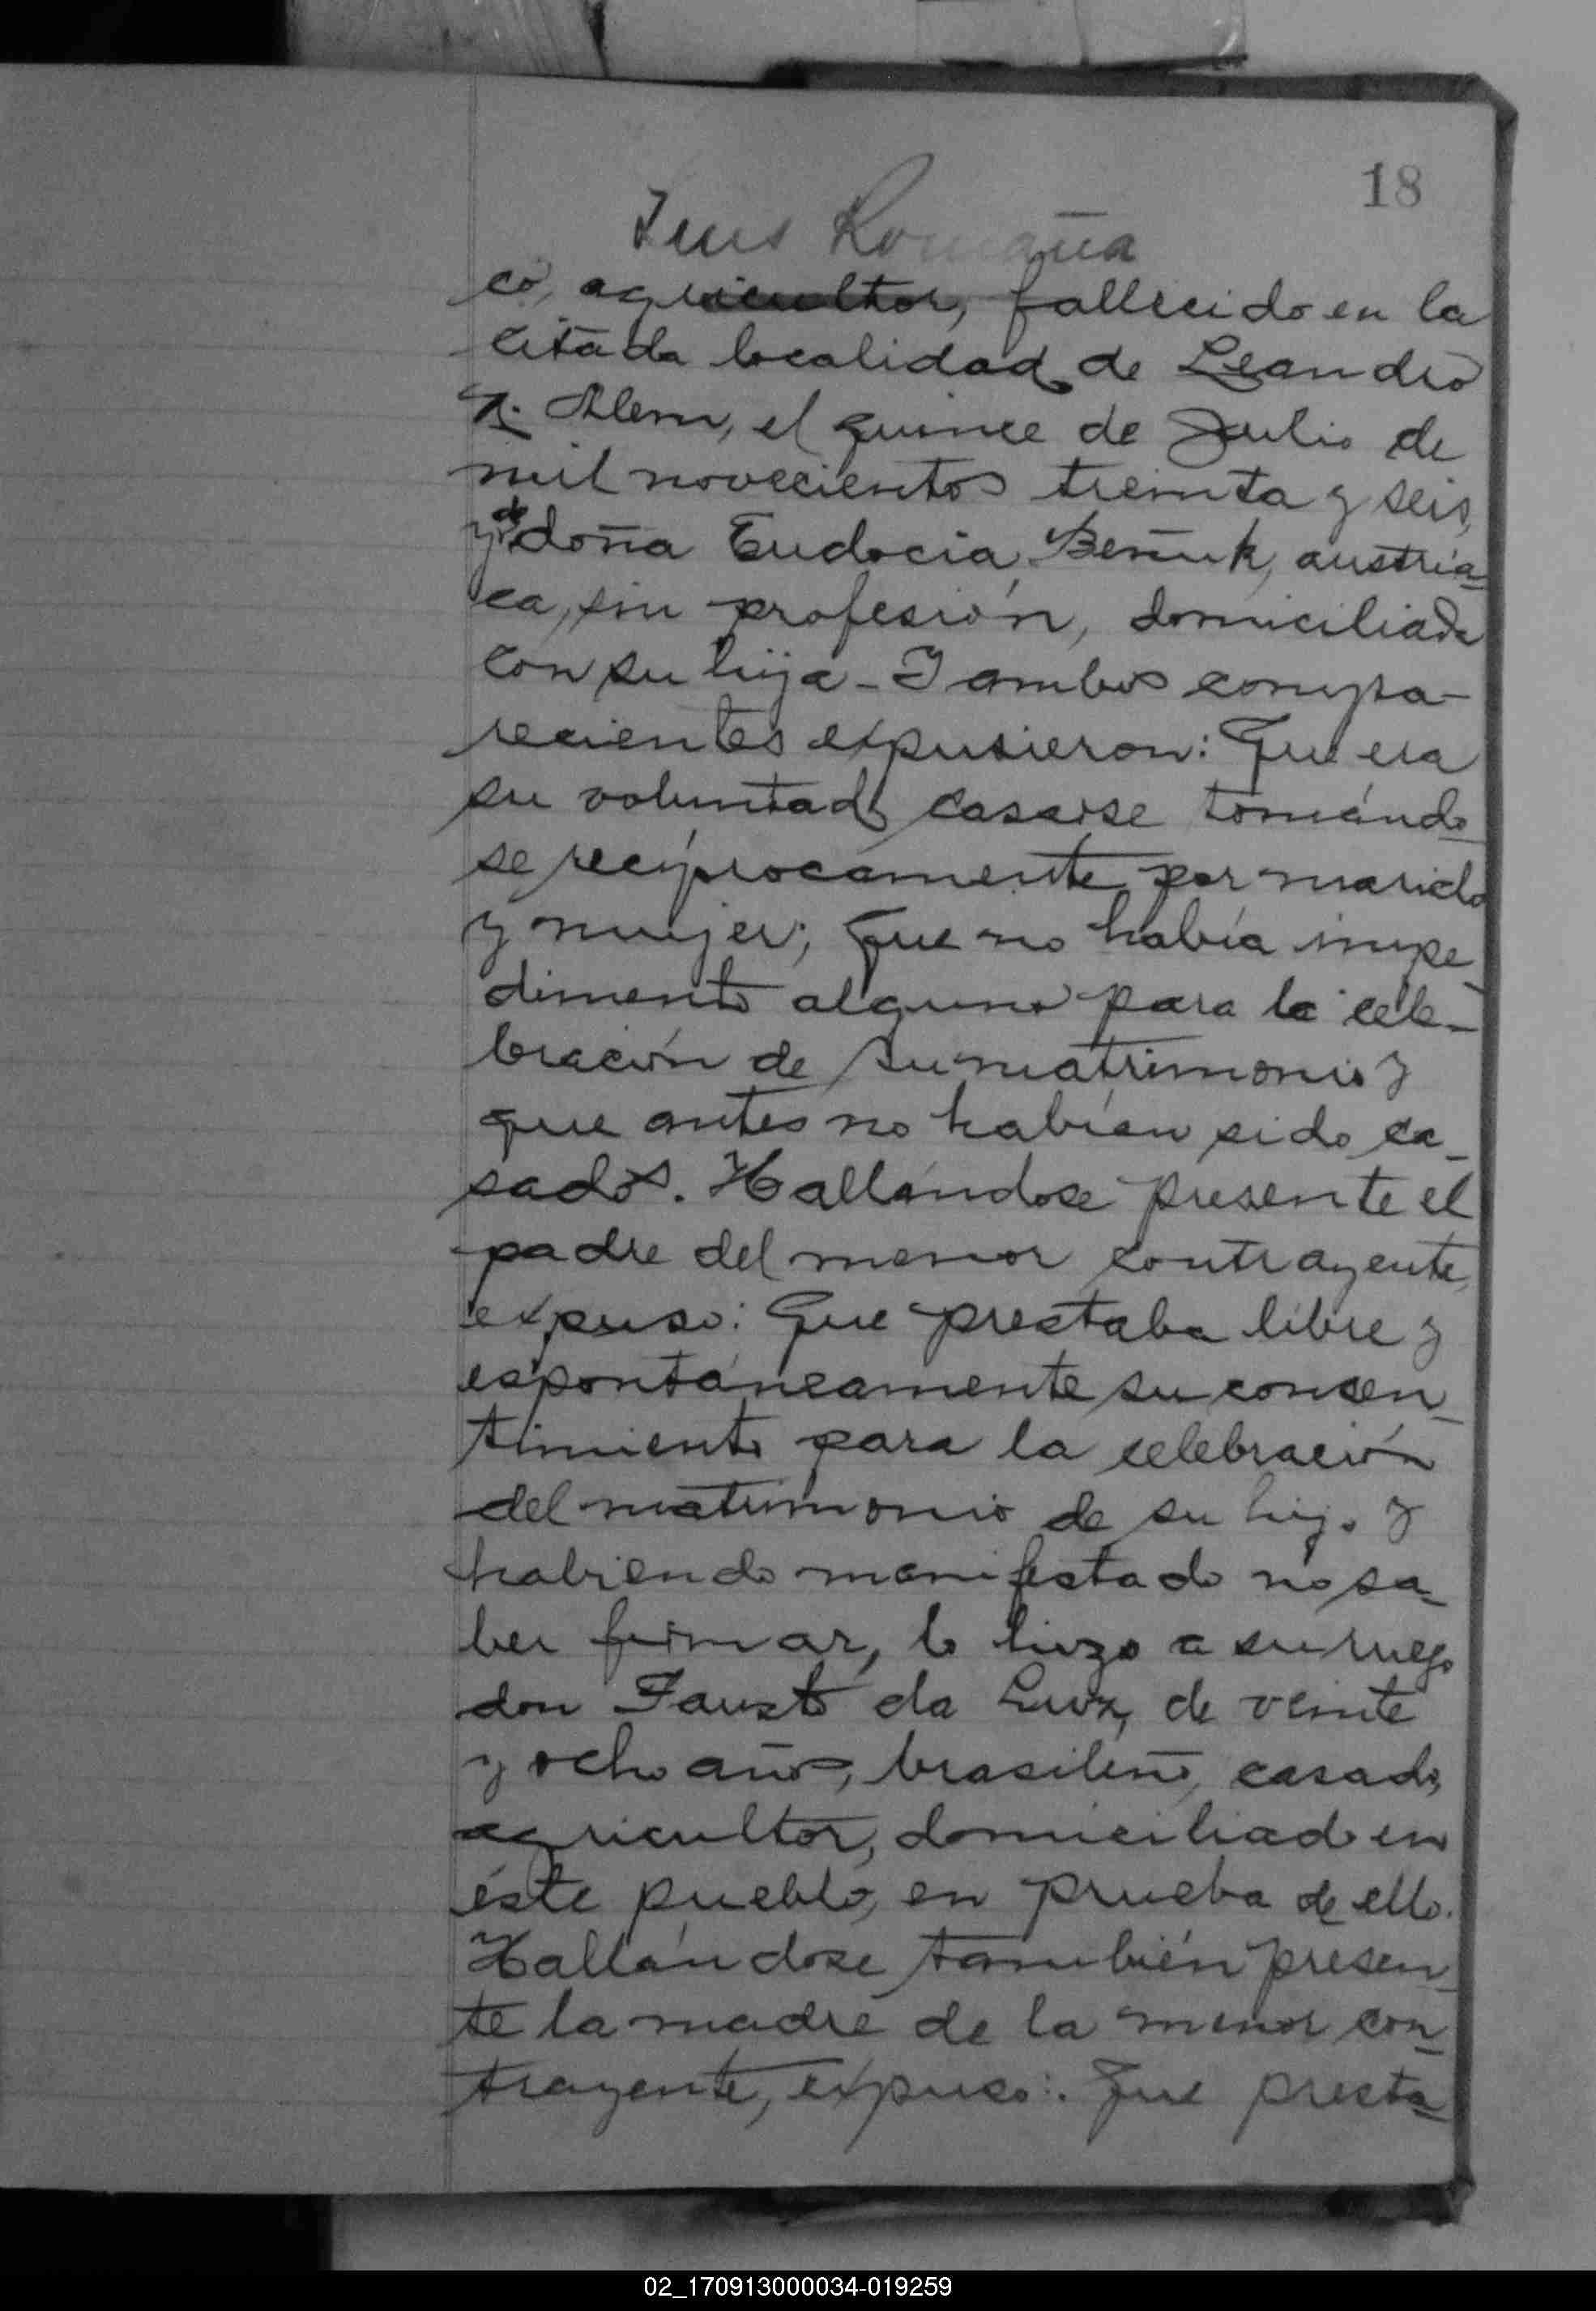 18
Luis Romaña
co, agricultor, fallecido en la
citada localidad de Leandro
N. Alem, el quince de Julio de
mil novecientos treinta y seis,
y de doña Eudocia Beñuk, austría-
ca, sin profesión, domiciliada
con su hija - Y ambos compa-
recientes expusieron: Que era
su voluntad casarse tomándo-
se recíprocamente por marido
y mujer; que no había impe-
dimento alguno para la cele-
bración de su matrimonio y
que antes no habían sido ca-
sados. Hallándose presente el
padre del menor contrayente,
expuso: Que prestaba libre y
espontáneamente su consen-
timiento para la celebración
del matrimonio de su hijo y
habiendo manifestado no sa-
ber firmar, lo hizo a su ruego
don Fausto da Luz, de veinte
y ocho años, brasileño, casado,
agricultor, domiciliado en
éste pueblo, en prueba de ello.
Hallándose también presen-
te la madre de la menor con-
trayente, expuso: Que presta-
02_170913000034-019259